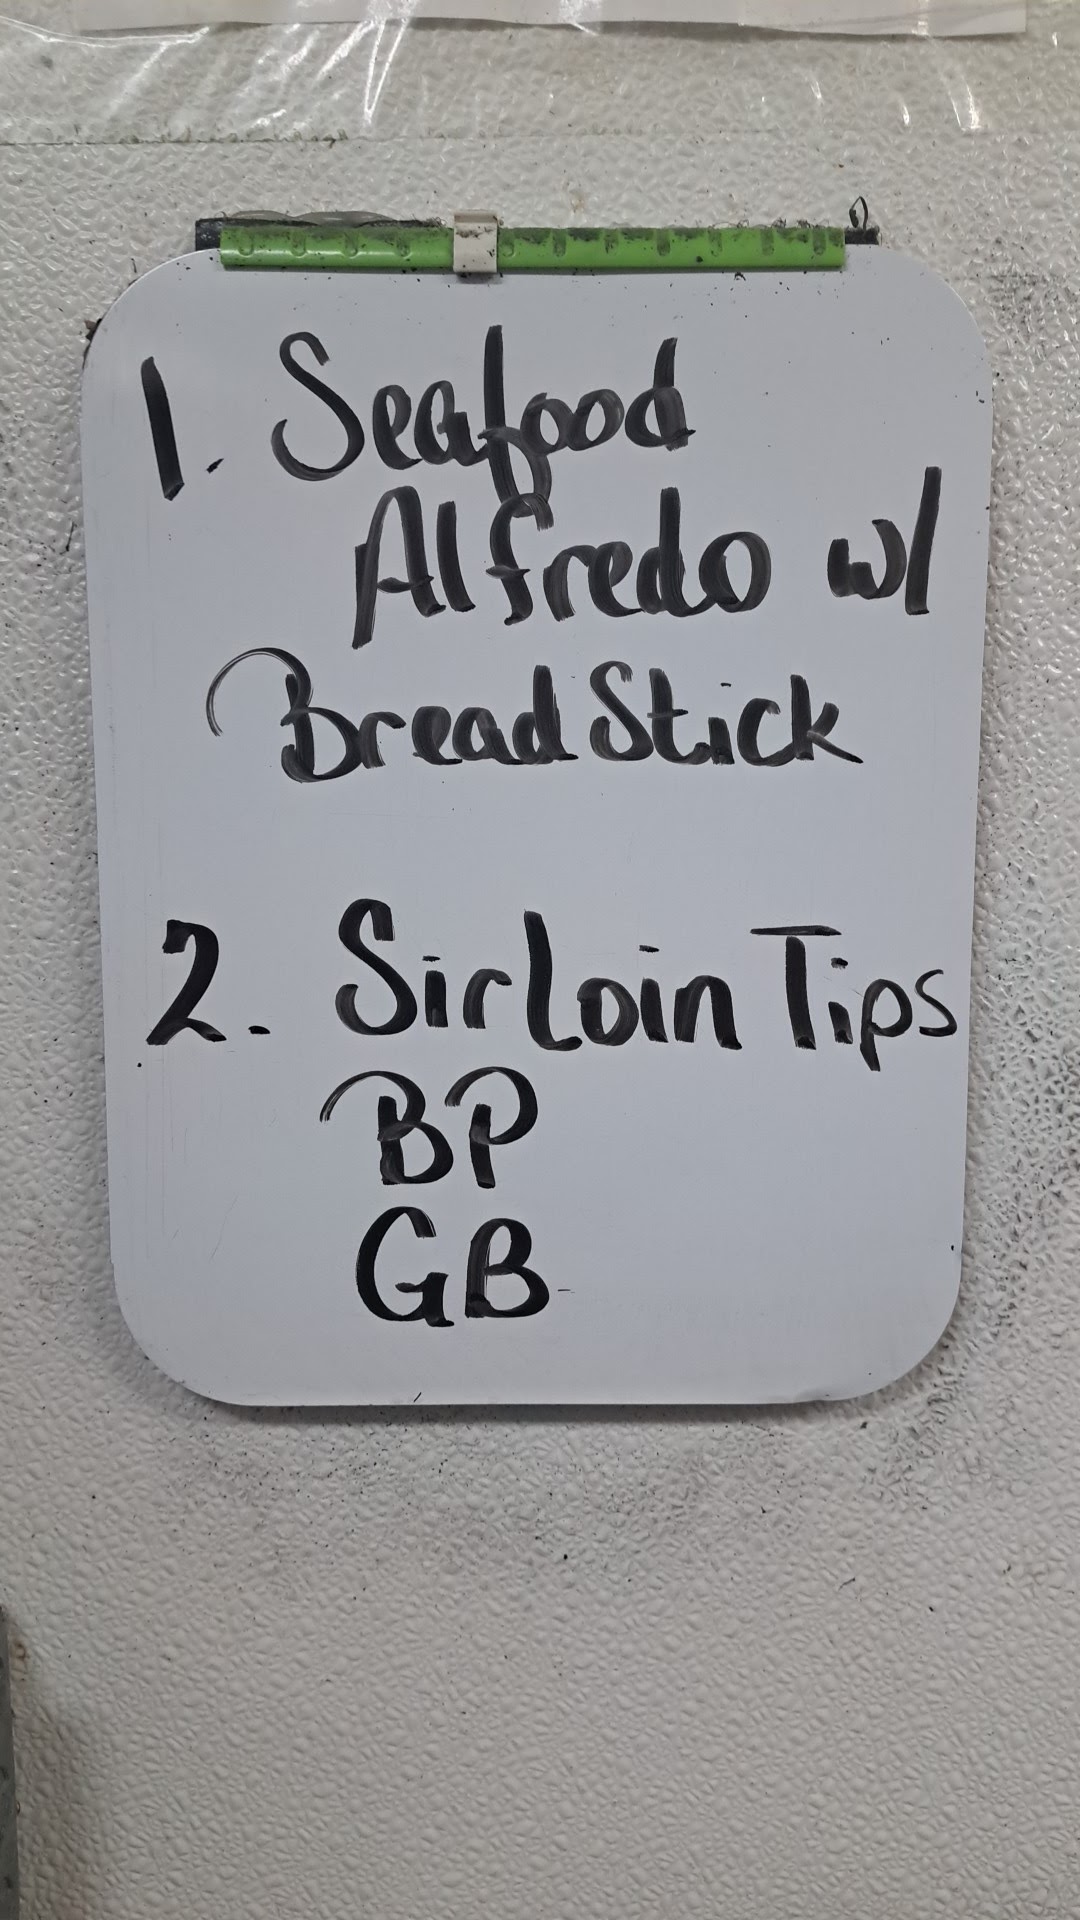 1. Seafood
Alfredo w/
BreadStick
2. Sirloin Tips
BP
GB